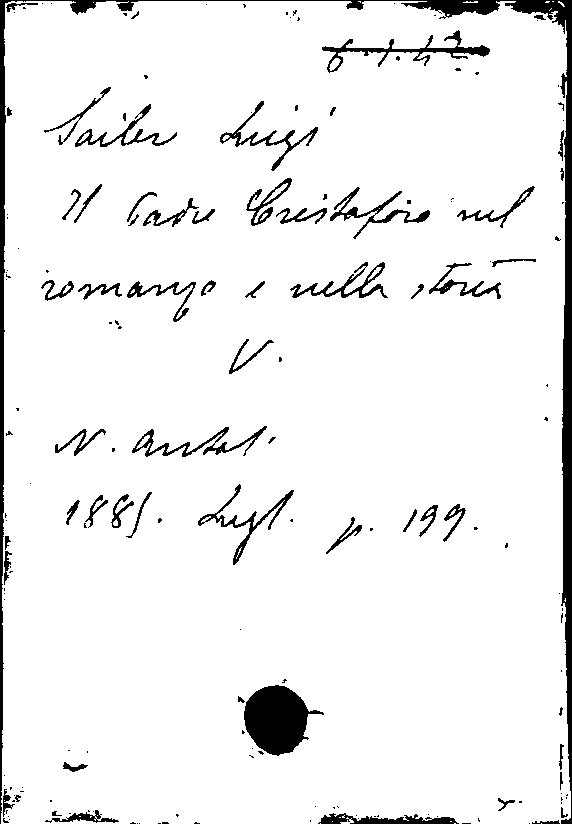 6.1.42
Sailer Luigi
Il Padre Cristoforo nel
romanzo e nella storia
V.
N. Antol.
1885. Lugl. p. 199.